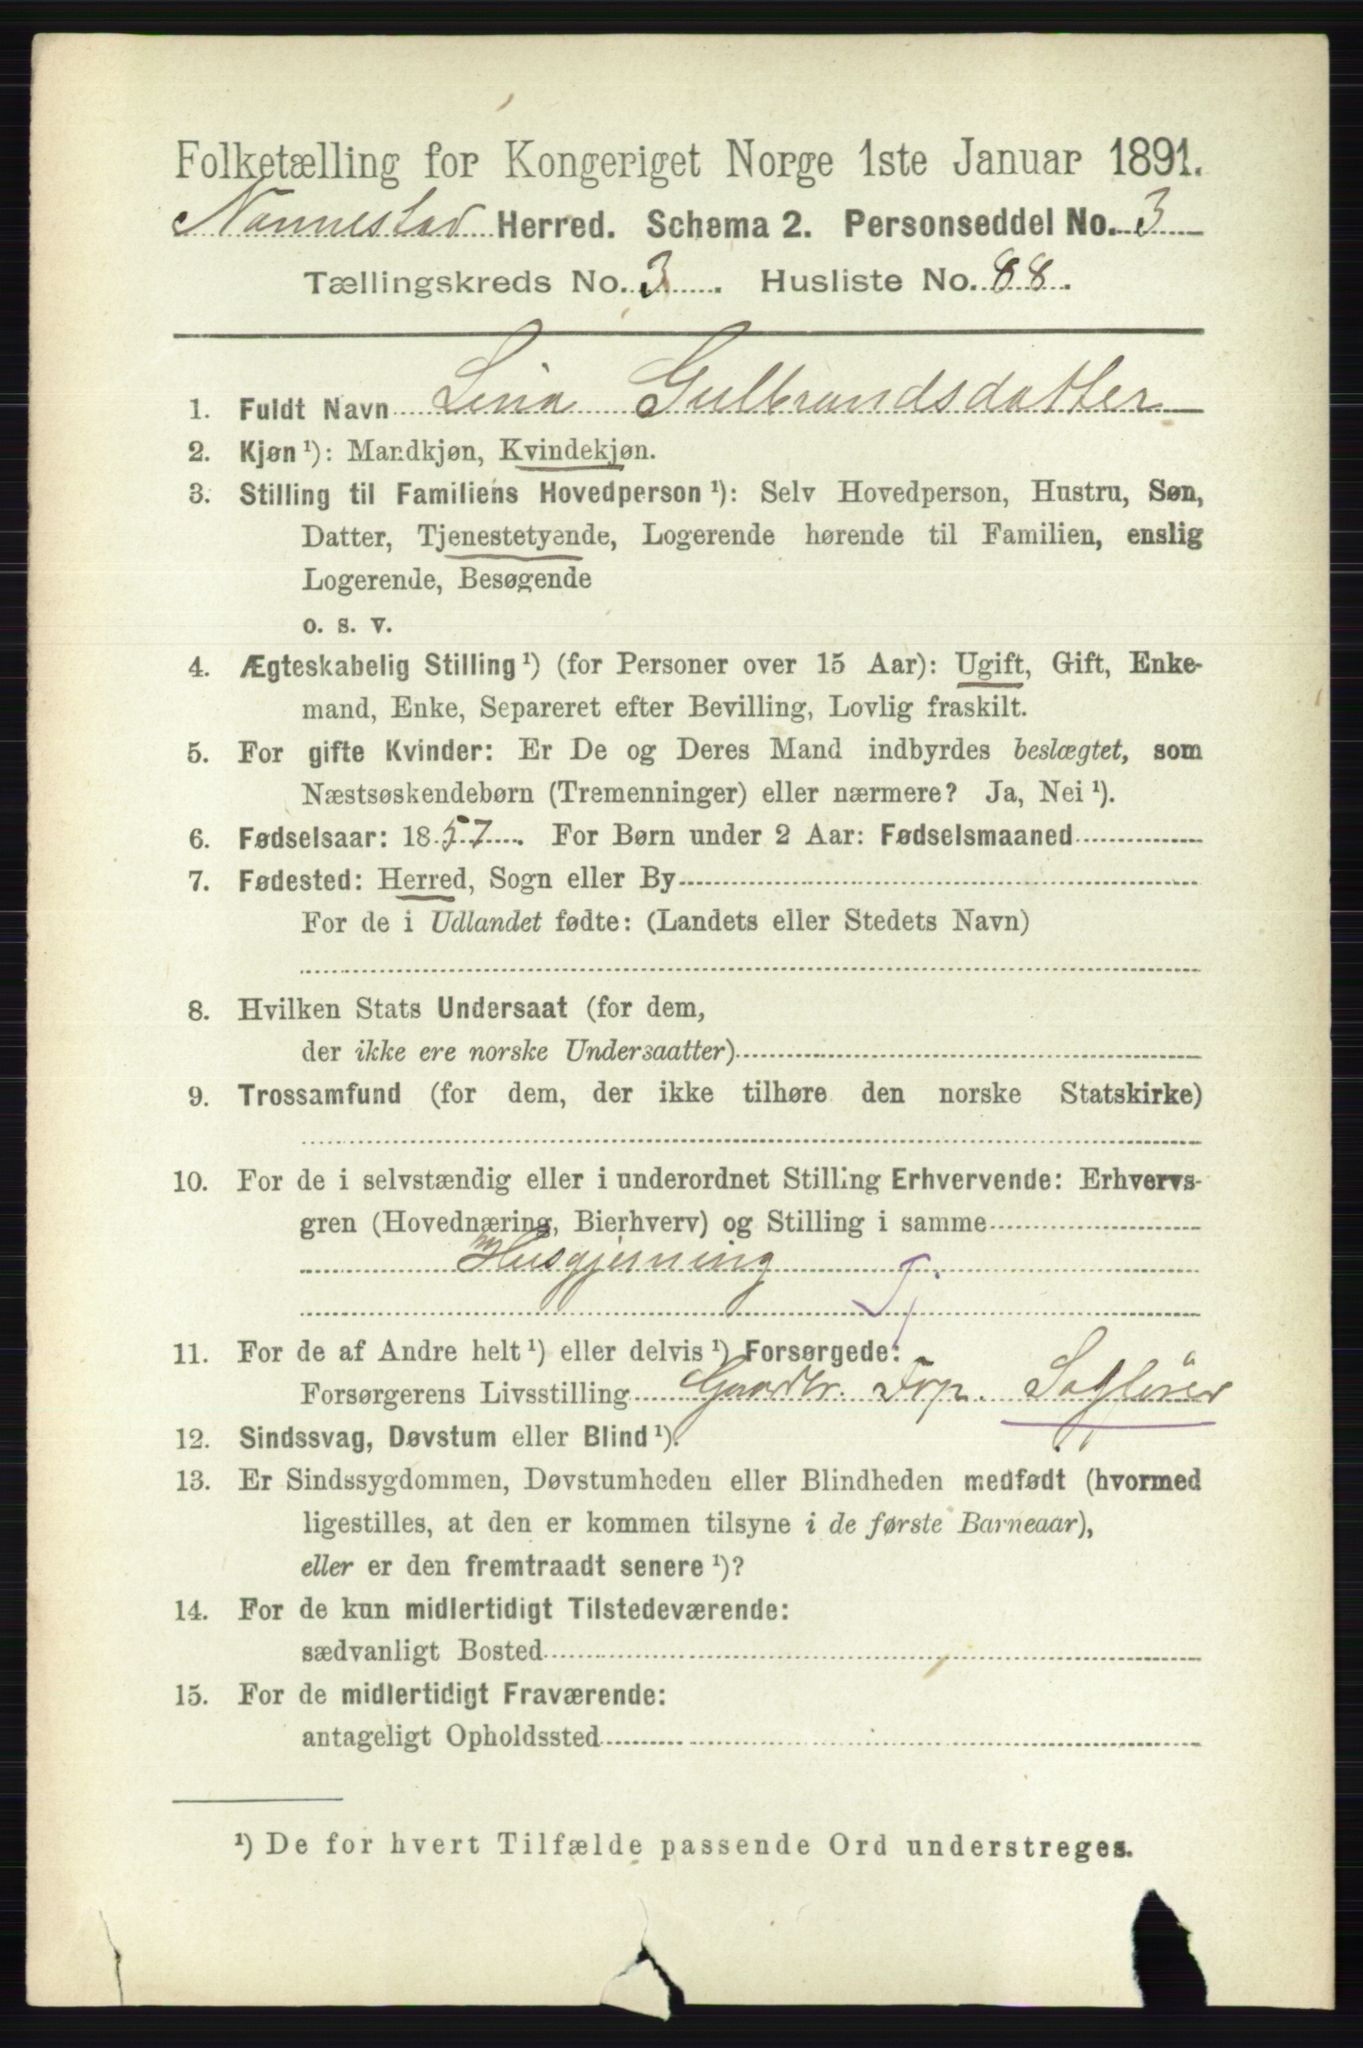 Folketælling for Kongeriget Norge 1ste Januar 1891.
Nannestad Herred. Schema 2. Personseddel No. 3
Tællingskreds No. 3. Husliste No. 88.
1. Fuldt Navn Lina Gulbrandsdatter
2. Kjøn ¹): Mandkjøn, Kvindekjøn.
3. Stilling til Familiens Hovedperson ¹): Selv Hovedperson, Hustru, Søn,
Datter, Tjenestetyende, Logerende hørende til Familien, enslig
Logerende, Besøgende
o. s. v.
4. Ægteskabelig Stilling ¹) (for Personer over 15 Aar): Ugift, Gift, Enke-
mand, Enke, Separeret efter Bevilling, Lovlig fraskilt.
5. For gifte Kvinder: Er De og Deres Mand indbyrdes beslægtet, som
Næstsøskendebørn (Tremenninger) eller nærmere? Ja, Nei ¹).
6. Fødselsaar: 1857. For Børn under 2 Aar: Fødselsmaaned
7. Fødested: Herred, Sogn eller By
For de i Udlandet fødte: (Landets eller Stedets Navn)
8. Hvilken Stats Undersaat (for dem,
der ikke ere norske Undersaatter)
9. Trossamfund (for dem, der ikke tilhøre den norske Statskirke)
10. For de i selvstændig eller i underordnet Stilling Erhvervende: Erhvervs-
gren (Hovednæring, Bierhverv) og Stilling i samme
Husgjerning Tj
11. For de af Andre helt ¹) eller delvis ¹) Forsørgede:
Forsørgerens Livsstilling Gaardbr. Frp.
12. Sindssvag, Døvstum eller Blind ¹).
13. Er Sindssygdommen, Døvstumheden eller Blindheden medfødt (hvormed
ligestilles, at den er kommen tilsyne i de første Barneaar),
eller er den fremtraadt senere ¹)?
14. For de kun midlertidigt Tilstedeværende:
sædvanligt Bosted
15. For de midlertidigt Fraværende:
antageligt Opholdssted
¹) De for hvert Tilfælde passende Ord understreges.